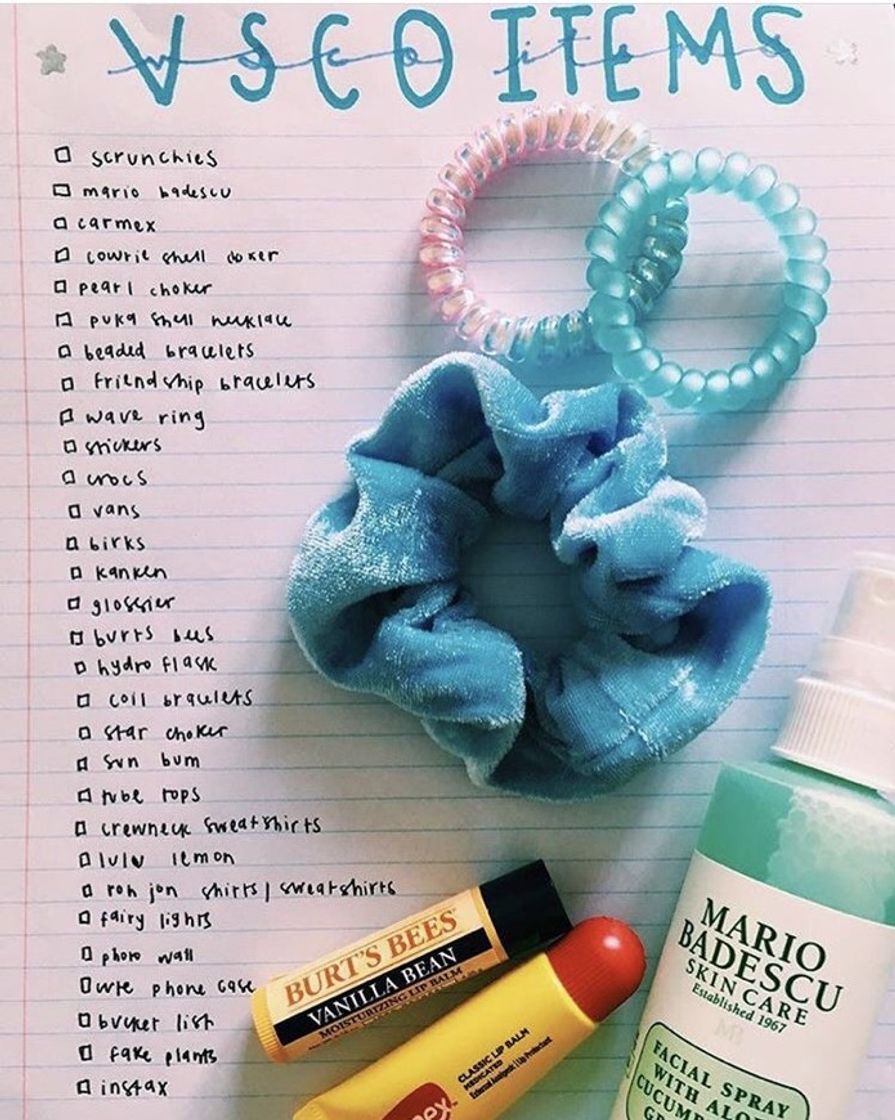 VSCO ITEMS
vsco items
scrunchies
mario badescu
carmex
cowrie shell coker
pearl choker
puka shell necklace
beaded bracelets
friendship bracelets
wave ring
stickers
crocs
vans
birks
kanken
glossier
burts bees
hydro flask
coil bracelets
star choker
sun bum
tube tops
crewneck sweatshirts
lulu lemon
ron jon shirts/sweatshirts
fairy lights
photo wall
cute phone case
bucket list
fake plants
instax
BURT'S BEES
VANILLA BEAN
MOISTURIZING LIP BALM
CLASSIC LIP BALM
MEDICATED
External Analgesic | Lip Protectant
mex
MARIO
BADESCU
SKIN CARE
Established 1967
FACIAL SPRAY
WITH ALO
CUCUM
GR